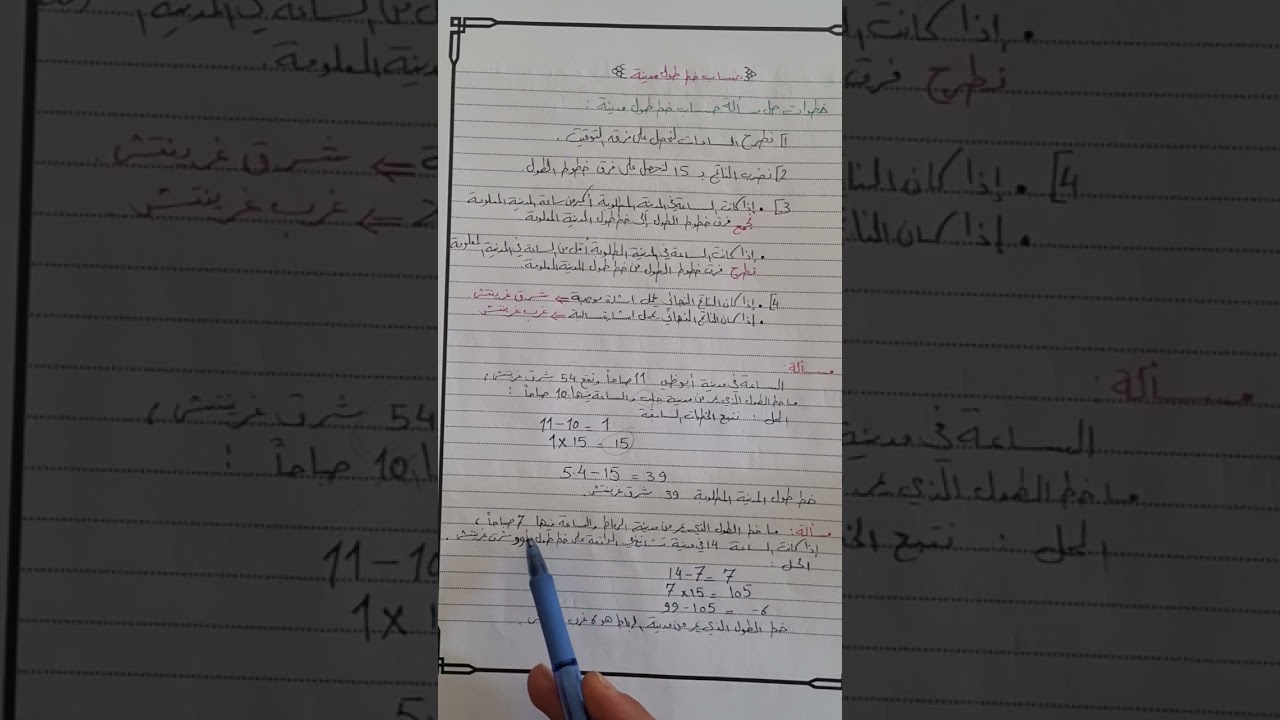 حساب خط طول مدينة
خطوات حل مسألة حساب خط طول مدينة :
1] نطرح الساعات لنحصل على فرق التوقيت.
2] نضرب الناتج بـ 15 لنحصل على فرق خطوط الطول.
3] • إذا كانت الساعة في المدينة المطلوبة أكبر من ساعة المدينة المعلومة
نجمع فرق خطوط الطول إلى خط طول المدينة المعلومة.
• إذا كانت الساعة في المدينة المطلوبة أقل من الساعة في المدينة المعلومة
نطرح فرق خطوط الطول من خط طول المدينة المعلومة.
4] • إذا كان الناتج النهائي يحمل إشارة موجبة ⇐ شرق غرينتش
• إذا كان الناتج النهائي يحمل إشارة سالبة ⇐ غرب غرينتش
مسألة :
الساعة في مدينة أبوظبي 11 صباحاً وتقع 54 شرق غرينتش ،
ما خط الطول الذي يمر من مدينة حلب والساعة فيها 10 صباحاً :
الحل : نتبع الخطوات السابقة
11 – 10 = 1
1 × 15 = 15
54 – 15 = 39
خط طول المدينة المطلوبة 39 شرق غرينتش.
مسألة : ما خط الطول الذي يمر من مدينة الرباط والساعة فيها 7 صباحاً ،
إذا كانت الساعة 14 في مدينة الواقعة على خط طول 99 شرق غرينتش .
الحل :
14 – 7 = 7
7 × 15 = 105
99 – 105 = -6
خط الطول الذي يمر من مدينة الرباط هو 6 غرب